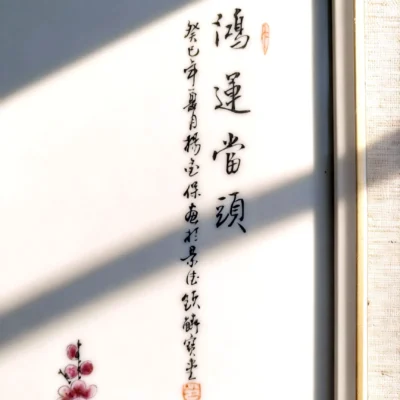 鴻運當頭
癸巳年夏月楊金保畫於景德頌齋寶堂